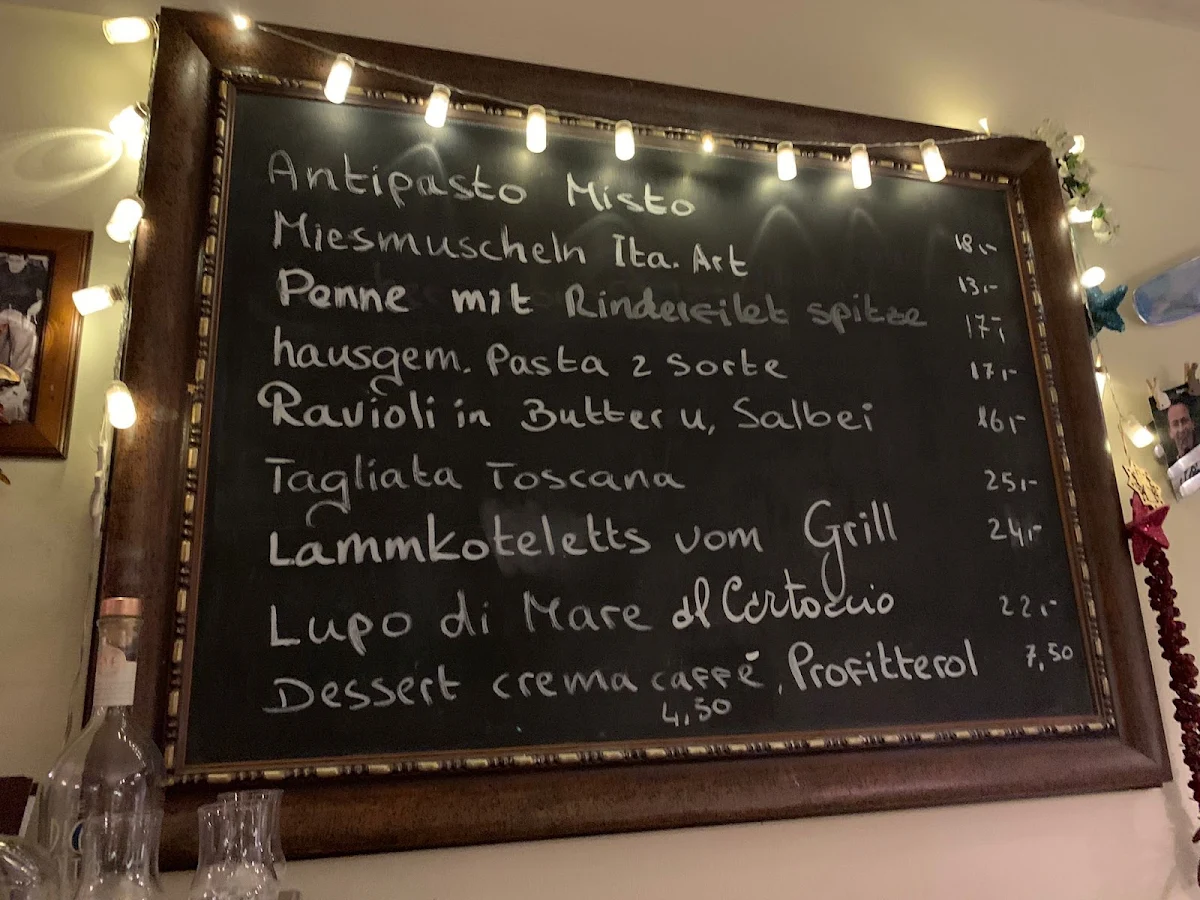 Antipasto Misto 18,-
Miesmuscheln Ita. Art 13,-
Penne mit Rinderfilet spitze 17,-
hausgem. Pasta 2 Sorte 17,-
Ravioli in Butter u, Salbei 16,-
Tagliata Toscana 25,-
Lammkoteletts vom Grill 24,-
Lupo di Mare al Cartoccio 22,-
Dessert crema caffé, Profitterol 7,50
4,50